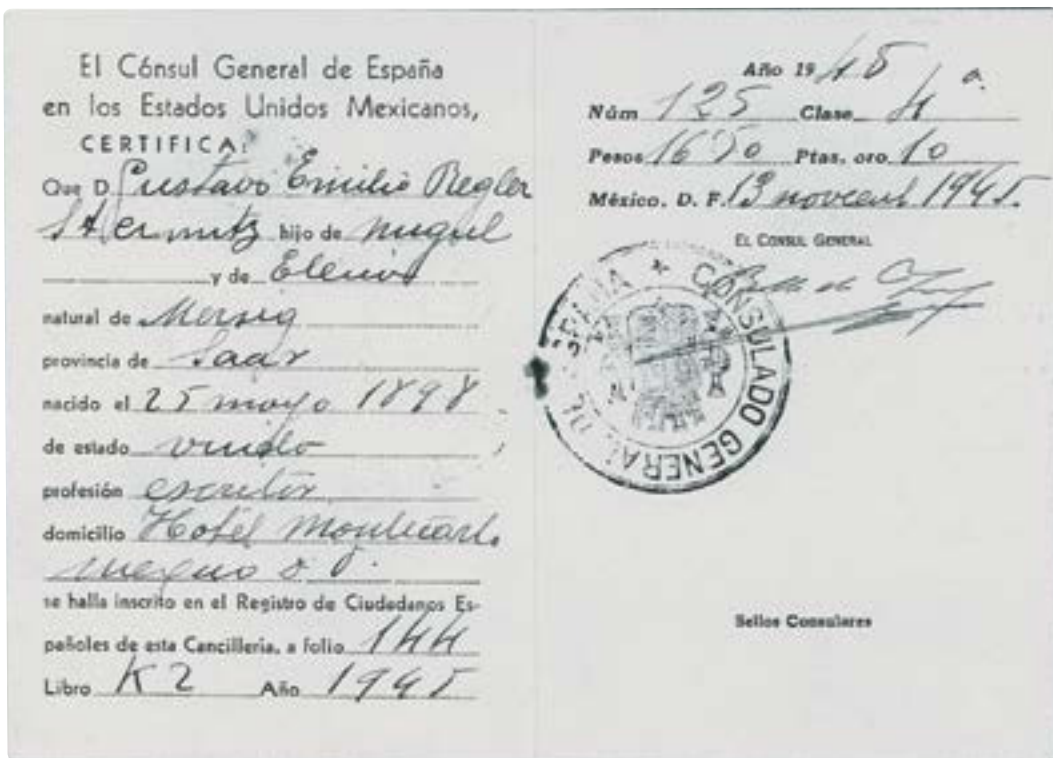 El Cónsul General de España
en los Estados Unidos Mexicanos,
CERTIFICA:
Que D. Gustavo Emilio Regler
hijo de Miguel
y de Elena
natural de Merzig
provincia de Saar
nacido el 25 mayo 1898
de estado viudo
profesión escritor
domicilio Hotel Montecarlo
Mexico D. F.
se halla inscrito en el Registro de Ciudadanos Es-
pañoles de esta Cancillería, a folio 144
Libro K 2 Año 1945
Año 1945
Núm 125 Clase 4ª
Pesos 16 50 Ptas. oro 10
México, D. F. 13 noviemb 1945.
EL CONSUL GENERAL
CONSULADO GENERAL DE ESPAÑA
Sellos Consulares